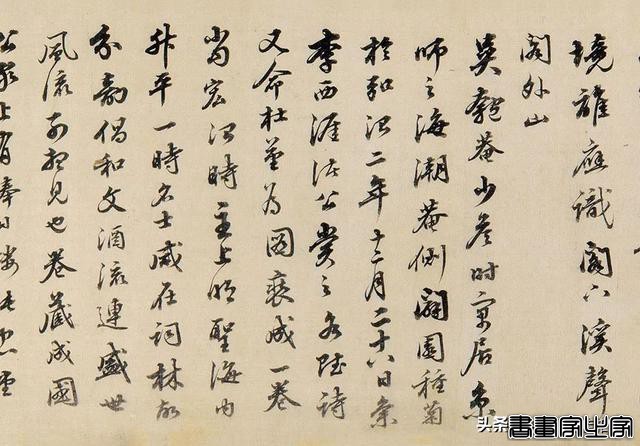 境誰應識閣下溪聲
閣外山
吳匏菴少詹時寓居京
師之海潮菴側闢園種菊
於弘治二年十二月二十六日集
李西涯諸公賞之各賦詩
又命杜堇為圖裒成一卷
當宏治時主上明聖海內
升平一時名士咸在詞林故
分韻倡和文酒流連盛世
風流可想見也卷藏成國
公家上有奉日樓
头条